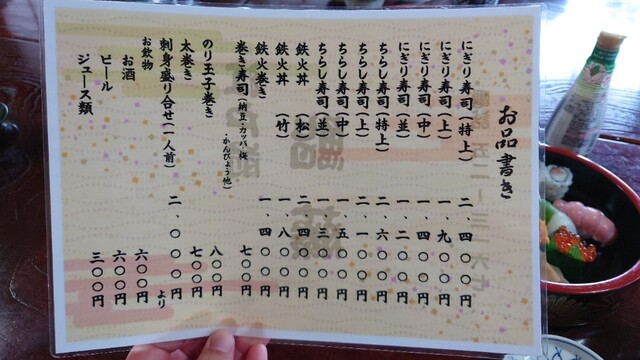 お品書き
にぎり寿司(特上) 二、四〇〇円
にぎり寿司(上) 一、九〇〇円
にぎり寿司(中) 一、四〇〇円
にぎり寿司(並) 一、二〇〇円
ちらし寿司(特上) 二、六〇〇円
ちらし寿司(上) 二、一〇〇円
ちらし寿司(中) 一、五〇〇円
ちらし寿司(並) 一、三〇〇円
鉄火丼 (松) 二、四〇〇円
鉄火丼 (竹) 一、八〇〇円
鉄火巻き 一、四〇〇円
巻き寿司(納豆・カッパ・梅・かんぴょう他) 七〇〇円
のり玉子巻き 八〇〇円
太巻き 七〇〇円
刺身盛り合せ(一人前) 二、〇〇〇円より
お飲物
お酒 六〇〇円
ビール 六〇〇円
ジュース類 三〇〇円